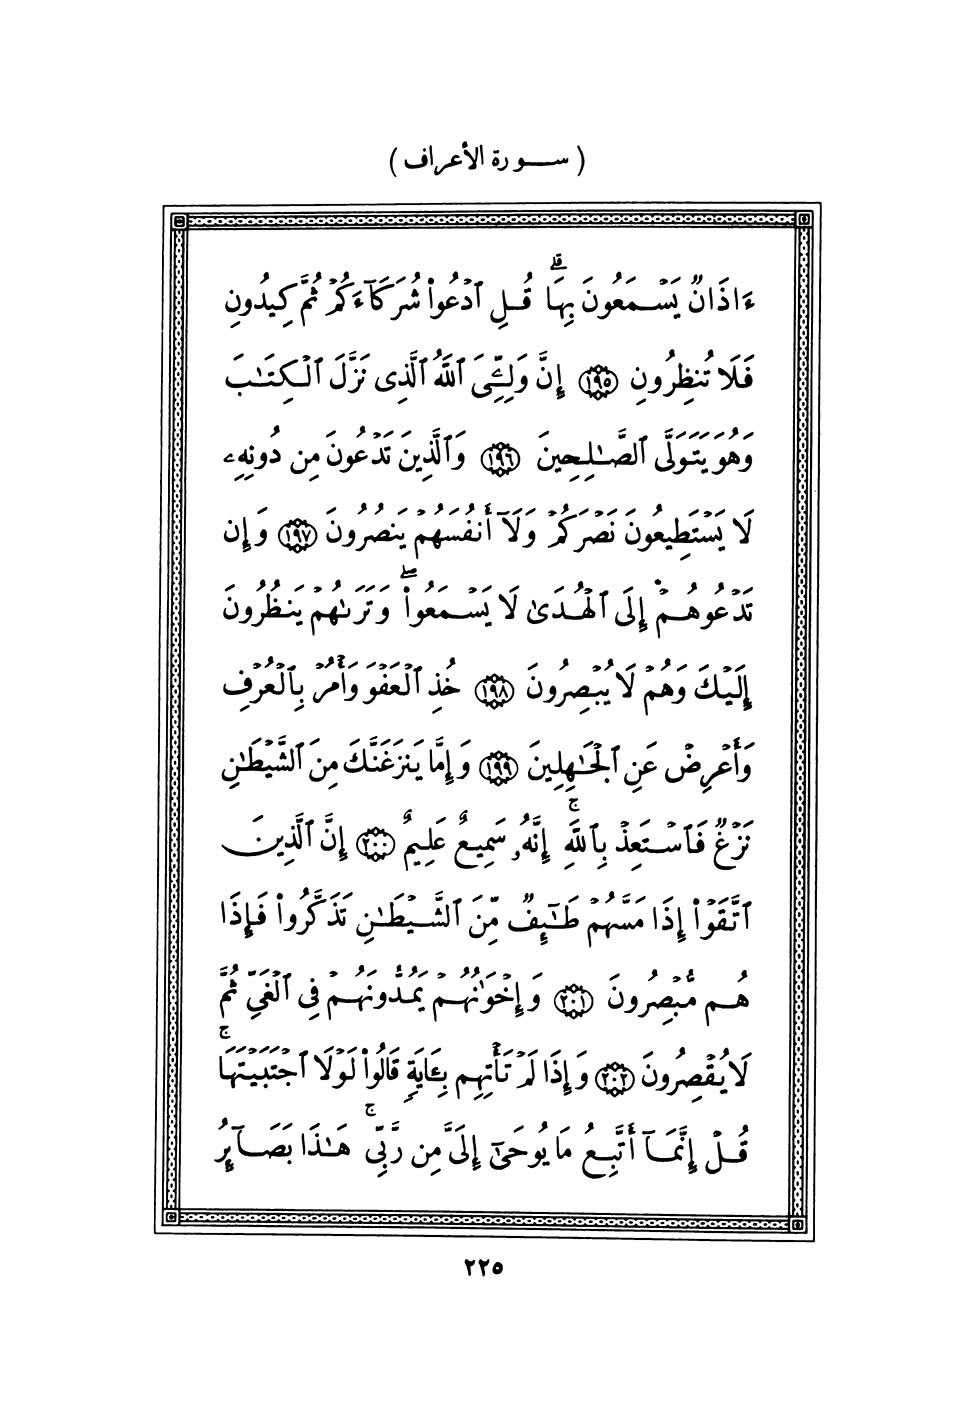 ( سورة الأعراف )
ءَاذَانٌ يَسْمَعُونَ بِهَاۗ قُلِ ٱدْعُوا۟ شُرَكَآءَكُمْ ثُمَّ كِيدُونِ
فَلَا تُنظِرُونِ ١٩٥ إِنَّ وَلِـِّۧىَ ٱللَّهُ ٱلَّذِى نَزَّلَ ٱلْكِتَـٰبَ
وَهُوَ يَتَوَلَّى ٱلصَّـٰلِحِينَ ١٩٦ وَٱلَّذِينَ تَدْعُونَ مِن دُونِهِۦ
لَا يَسْتَطِيعُونَ نَصْرَكُمْ وَلَآ أَنفُسَهُمْ يَنصُرُونَ ١٩٧ وَإِن
تَدْعُوهُمْ إِلَى ٱلْهُدَىٰ لَا يَسْمَعُوا۟ۖ وَتَرَىٰهُمْ يَنظُرُونَ
إِلَيْكَ وَهُمْ لَا يُبْصِرُونَ ١٩٨ خُذِ ٱلْعَفْوَ وَأْمُرْ بِٱلْعُرْفِ
وَأَعْرِضْ عَنِ ٱلْجَـٰهِلِينَ ١٩٩ وَإِمَّا يَنزَغَنَّكَ مِنَ ٱلشَّيْطَـٰنِ
نَزْغٌ فَٱسْتَعِذْ بِٱللَّهِۚ إِنَّهُۥ سَمِيعٌ عَلِيمٌ ٢٠٠ إِنَّ ٱلَّذِينَ
ٱتَّقَوْا۟ إِذَا مَسَّهُمْ طَـٰٓئِفٌ مِّنَ ٱلشَّيْطَـٰنِ تَذَكَّرُوا۟ فَإِذَا
هُم مُّبْصِرُونَ ٢٠١ وَإِخْوَٰنُهُمْ يَمُدُّونَهُمْ فِى ٱلْغَىِّ ثُمَّ
لَا يُقْصِرُونَ ٢٠٢ وَإِذَا لَمْ تَأْتِهِم بِـَٔايَةٍ قَالُوا۟ لَوْلَا ٱجْتَبَيْتَهَاۚ
قُلْ إِنَّمَآ أَتَّبِعُ مَا يُوحَىٰٓ إِلَىَّ مِن رَّبِّىۚ هَـٰذَا بَصَآئِرُ
٢٢٥